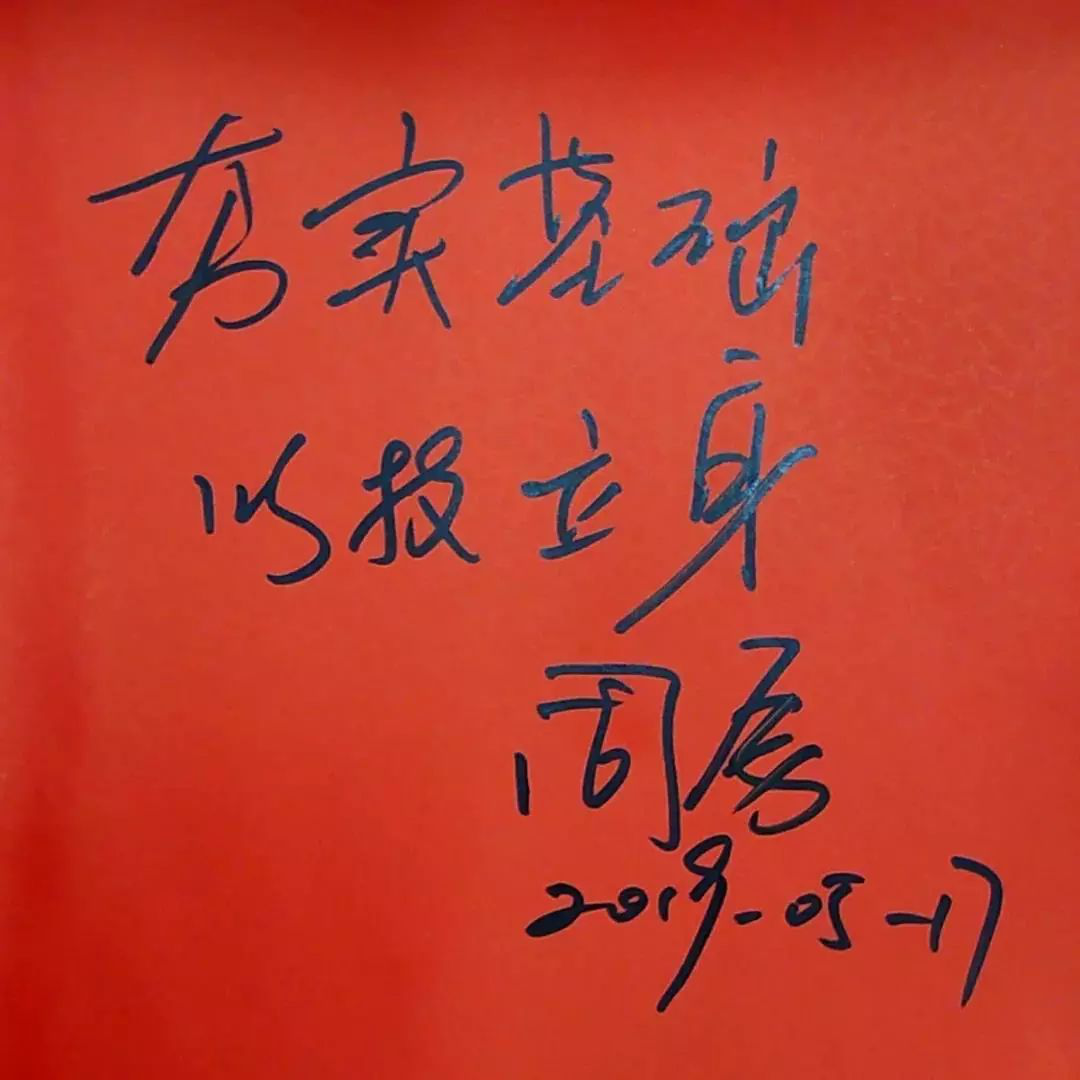 夯实基础
以技立身
周
2019-05-17